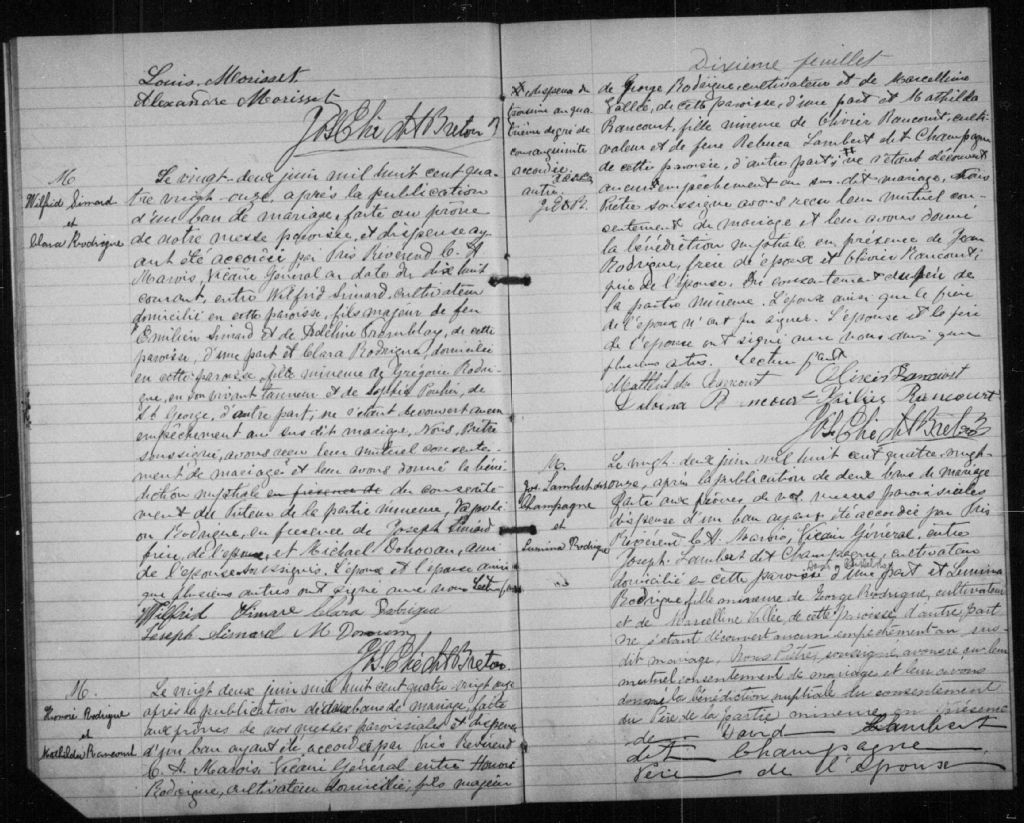 Louis Morisset
Alexandre Morisset
Jos. Elie dit Breton
M
Wilfrid Simard
et
Clara Rodrigue
Le vingt-deux juin mil huit cent qua-
tre vingt-onze, après la publication
d'un ban de mariage, faite au prône
de notre messe paroissiale, et dispense ay-
ant été accordée par Très Révérend C. A
Marois, Vicaire Général en date du dix huit
courant, entre Wilfrid Simard, cultivateur
domicilié en cette paroisse, fils majeur de feu
Emilien Simard et de Adéline Tremblay, de cette
paroisse, d'une part et Clara Rodrigue, domiciliée
en cette paroisse, fille mineure de Grégoire Rodri-
gue, en son vivant tanneur et de Sophie Poulin, de
St George, d'autre part, ne s'étant découvert aucun
empêchement au sus dit mariage, Nous, Prêtre
soussigné, avons reçu leur mutuel consente-
ment de mariage et leur avons donné la béné-
diction nuptiale en présence de du consente-
ment du tuteur de la partie mineure, Napolé-
on Rodrigue, en presence de Joseph Simard
frère de l'époux, et Michael Donovan, ami
de l'epouse soussignés. L'époux et l'épouse ainsi
que plusieurs autres ont signé avec nous. Lect. faite
Wilfrid Simard Clara Rodrigue
Joseph Simard M Donovan
Jos. Elie dit Breton
M.
Honoré Rodrigue
et
Mathilda Rancourt
Le vingt deux juin mil huit cent quatre vingt onze
après la publication de deux bans de mariage, faite
aux prônes de nos messes paroissiales et dispense
d'un ban ayant été accordée par Très Révérend
C. A. Marois, Vicaire Général entre Honoré
Rodrigue, cultivateur domicilié, fils majeur
Dixième feuillet
dispense du
troisième au qua-
trième degré de
consanguinité
accordée.
J. E. d. B.
autre
J. E. d. B.
de George Rodrigue, cultivateur et de Marcelline
Vallée, de cette paroisse, d'une part et Mathilda
Rancourt, fille mineure de Olivier Rancourt, culti-
vateur et de feue Rebecca Lambert dit Champagne
de cette paroisse, d'autre part; ne s'étant découvert
aucun empêchement au sus-dit mariage, Nous
Prêtre soussigné avons reçu leur mutuel con-
sentement du mariage et leur avons donné
la bénédiction nuptiale en présence de Jean
Rodrigue, frère de l'époux et Olivier Rancourt,
père de l'épouse. Du consentement du père de
la partie mineure. L'époux ainsi que le frère
de l'époux n'ont pu signer. L'épouse et le père
de l'épouse ont signé avec nous ainsi que
plusieurs autres. Lecture faite
Mathilda Rancourt Olivier Rancourt
Rancourt Rancourt
Jos. Elie dit Breton
M.
Jos. Lambert dit
Champagne
et
Lumina Rodrigue
Le vingt-deux juin mil huit cent quatre-vingt-
onze, après la publication de deux bans de mariage
faite aux prônes de nos messes paroissiales
dispense d'un ban ayant été accordée par Très
Révérend C. A. Marois, Vicaire Général, entre
Joseph Lambert dit Champagne, cultivateur
domicilié en cette paroisse d'une part et Lumina
Rodrigue, fille mineure de George Rodrigue, cultivateur
et de Marcelline Vallée, de cette paroisse, d'autre part
ne s'étant découvert aucun empêchement au sus-
dit mariage, Nous Prêtre, soussigné, avons reçu leur
mutuel consentement de mariage et leur avons
donné la bénédiction nuptiale du consentement
du Père de la partie mineure en présence
de David Lambert
dit Champagne
Père de l'Epoux